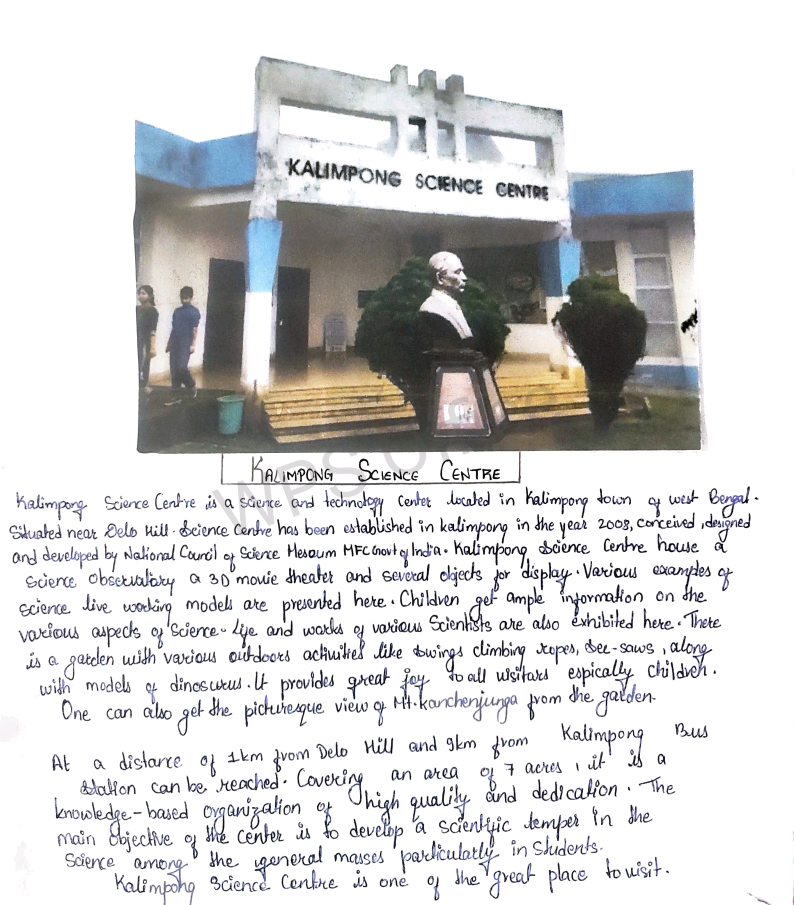 KALIMPONG SCIENCE CENTRE
KALIMPONG SCIENCE CENTRE
Kalimpong Science Centre is a science and technology center located in Kalimpong town of west Bengal.
Situated near Delo Hill. Science Centre has been established in kalimpong in the year 2008, conceived, designed
and developed by National Council of Science Mesaum MFC Govt of India. Kalimpong Science Centre house a
Science Observatory a 3D movie theater and several objects for display. Various examples of
science live working models are presented here. Children get ample information on the
various aspects of Science. Life and works of various Scientists are also exhibited here. There
is a garden with various outdoors activities like swings climbing ropes, see-saws, along
with models of dinosurus. It provides great joy to all visitars espically children.
One can also get the picturesque view of Mt. kanchenjunga from the garden.
At a distance of 1km from Delo Hill and 9km from Kalimpong Bus
station can be reached. Covering an area of 7 acres, it is a
knowledge-based organization of high quality and dedication. The
main objective of the center is to develop a scientific temper in the
Science among the general masses particularly in Students.
Kalimpong Science Centre is one of the great place to visit.